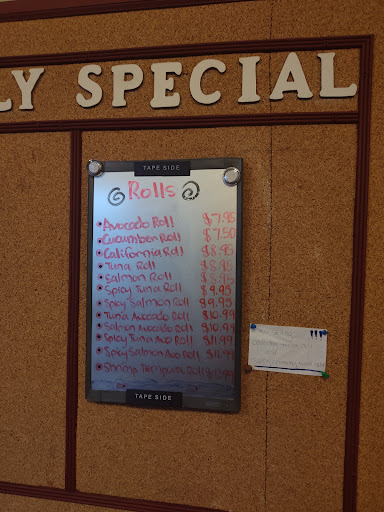 LY SPECIAL
TAPE SIDE
Rolls
Avocado Roll $7.95
Cucumber Roll $7.50
California Roll $8.95
Tuna Roll $8.95
Salmon Roll $8.95
Spicy Tuna Roll $9.95
Spicy Salmon Roll $9.95
Tuna Avocado Roll $10.99
Salmon Avocado Roll $10.99
Spicy Tuna Avo Roll $11.99
Spicy Salmon Avo Roll $11.99
Shrimp Tempura Roll
TAPE SIDE